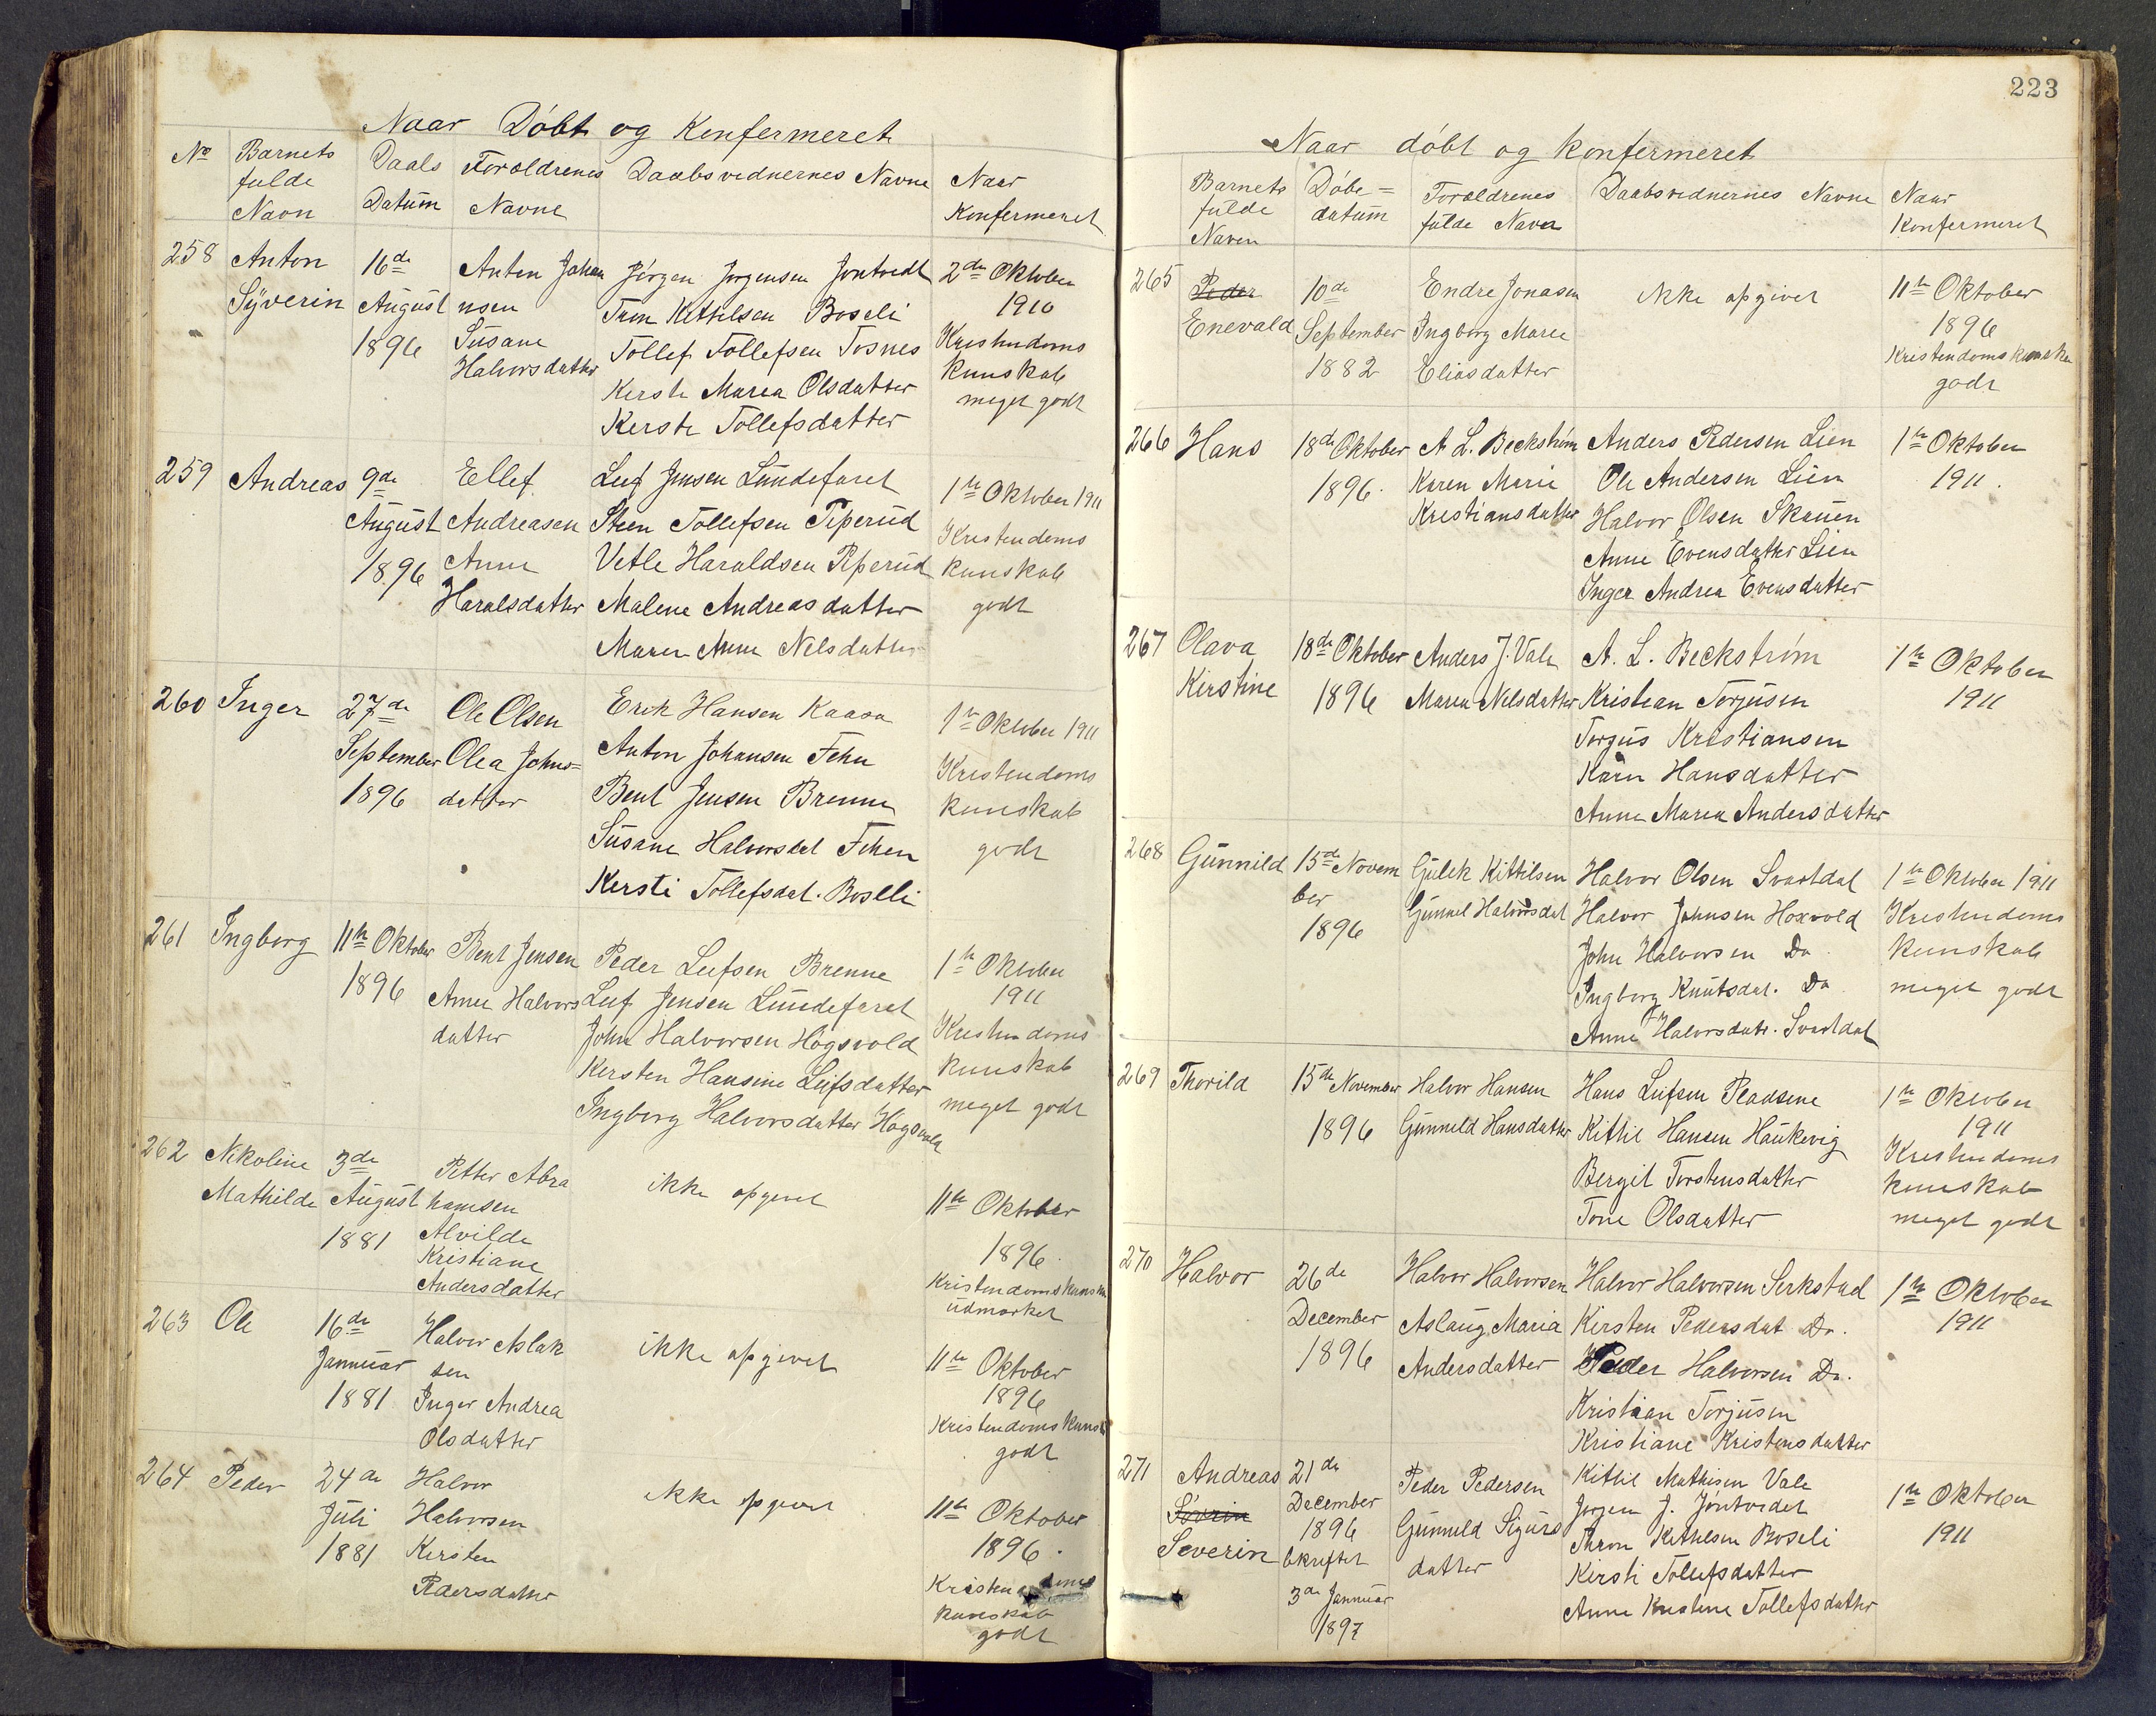 Naar Döbt og Konfermeret
No Barnets fulde Navn
Daabs Datum
Foroldrenes Navne
Daabsvednernes Navne
Naar Konfermeret
258 Anton Syverin
16de August 1896
Anton Johannsen
Susane Halvorsdatter
Jörgen Jorgensen Jontvedt
Tron Kittilsen Boseli
Tollef Tollefsen Tosnes
Kerste Marea Olsdatter
Kerste Tollefsdatter
2den Oktober
1910
Kristendoms
kunskab
meget godt
259 Andreas
9de August 1896
Ellef Andreasen
Anne Haralsdatter
Leif Jensen Lundefaret
Steen Tollefsen Piperud
Vetle Haraldsen Piperud
Malene Andreasdatter
Maren Anne Nelsdatter
1te Oktober 1911
Kristendoms
kunskab
godt
260 Inger
27de September 1896
Ole Olsen
Olea Johns=
datter
Erik Hansen Kaasa
Anton Johansen Fehn
Bent Jensen Brenne
Susane Halvorsdat Fehen
Kersti Tollefsdat. Boslli
1te Oktober 1911
Kristendoms
kunskab
godt
261 Ingborg
11te Oktober
1896
Bent Jensen
Anne Halvors
datter
Peder Leifsen Brenne
Leif Jensen Lundefaret
John Halvorsen Högsvold
Kersten Hansine Leifsdatter
Ingborg Halvorsdatter Hogsvold
1te Oktober
1911
Kristendoms
kunskab
meget godt
262 Nikoline Mathilde
3de August 1881
Petter Abra
hamsen
Alvilde
Kristiane
Andersdatter
ikke opgivet
11te Oktober
1896.
Kristendomskunska
udmarket
263 Ole
16de Jannuar 1881
Halvor Aslak
sen
Inger Andrea
Olsdatter
ikke opgivet
11te Oktober
1896
Kristendoms kunsk
godt
264 Peder
24de Juli 1881
Halvor
Halvorsen
Kersten
Pedersdatter
ikke opgivet
11te Oktober
1896.
Kristendoms
kunskab
godt
223
Naar döbt og konfermeret
Barnets fulde Naven
Döbe=
datum
Foroldrenes
fulde Naven
Daabsvednernes Navne
Naar
Konfermeret
265 Peder
Enevald
10de September 1882
Endre Jonasen
Ingborg Marie
Eliasdatter
ikke opgivet
11te Oktober
1896
Kristendomskunska
godt
266 Hans
18de Oktober
1896.
A. L. Beckström
Karen Marie
Kristiansdatter
Anders Pedersen Lien
Ole Andersen Lien
Halvor Olsen Skauen
Anne Evensdatter Lien
Inger Andrea Evensdatter
1te Oktober
1911.
267 Olava
Kirstine
18de Oktober
1896
Anders J. Vale
Maren Nilsdatter
A. L. Beckström
Kristian Torjusen
Torgus Kristiansen
Karen Hansdatter
Anne Marea Andersdatter
1te Oktober
1911
268 Gunnild
15de Novem
ber
1896
Gulek Kittilsen
Gunnel Halvorsdat
Halvor Olsen Svartdal
Halvor Johnsen Hoxvold
John Halvorsen Do
Ingborg Knutsdat. Do
Anne Halvorsdatr. Svartdal
1te Oktober 1911
Kristendoms
kunskab
meget godt
269 Thorild
15de November
1896
Halvor Hansen
Gunneld Hansdatter
Hans Leifsen Pladsene
Kittil Hansen Haukevig
Bergit Torstensdatter
Tone Olsdatter
1te Oktober
1911
Kristendoms
kunskab
meget godt
270 Halvor
26de
December
1896
Halvor Halvorsen
Aslaug Maria
Andersdatter
Halvor Halvorsen Serkstad
Kirsten Pedersdat Do.
Peder Halvorsen Do.
Kristian Torjusen
Kristiane Kristensdatter
1te Oktober
1911
271 Andreas
Söverin
Severin
21de
December
1896
bkreftet
3de Jannuar
1897
Peder Pedersen
Gunneld Sigurs
datter
Kittil Mathisen Vale
Jorgen J. Jontvedet
Thron Kethelsen Boseli
Kirsti Tollefsdatter
Anne Kristine Tollefsdatter
1te Oktober
1911